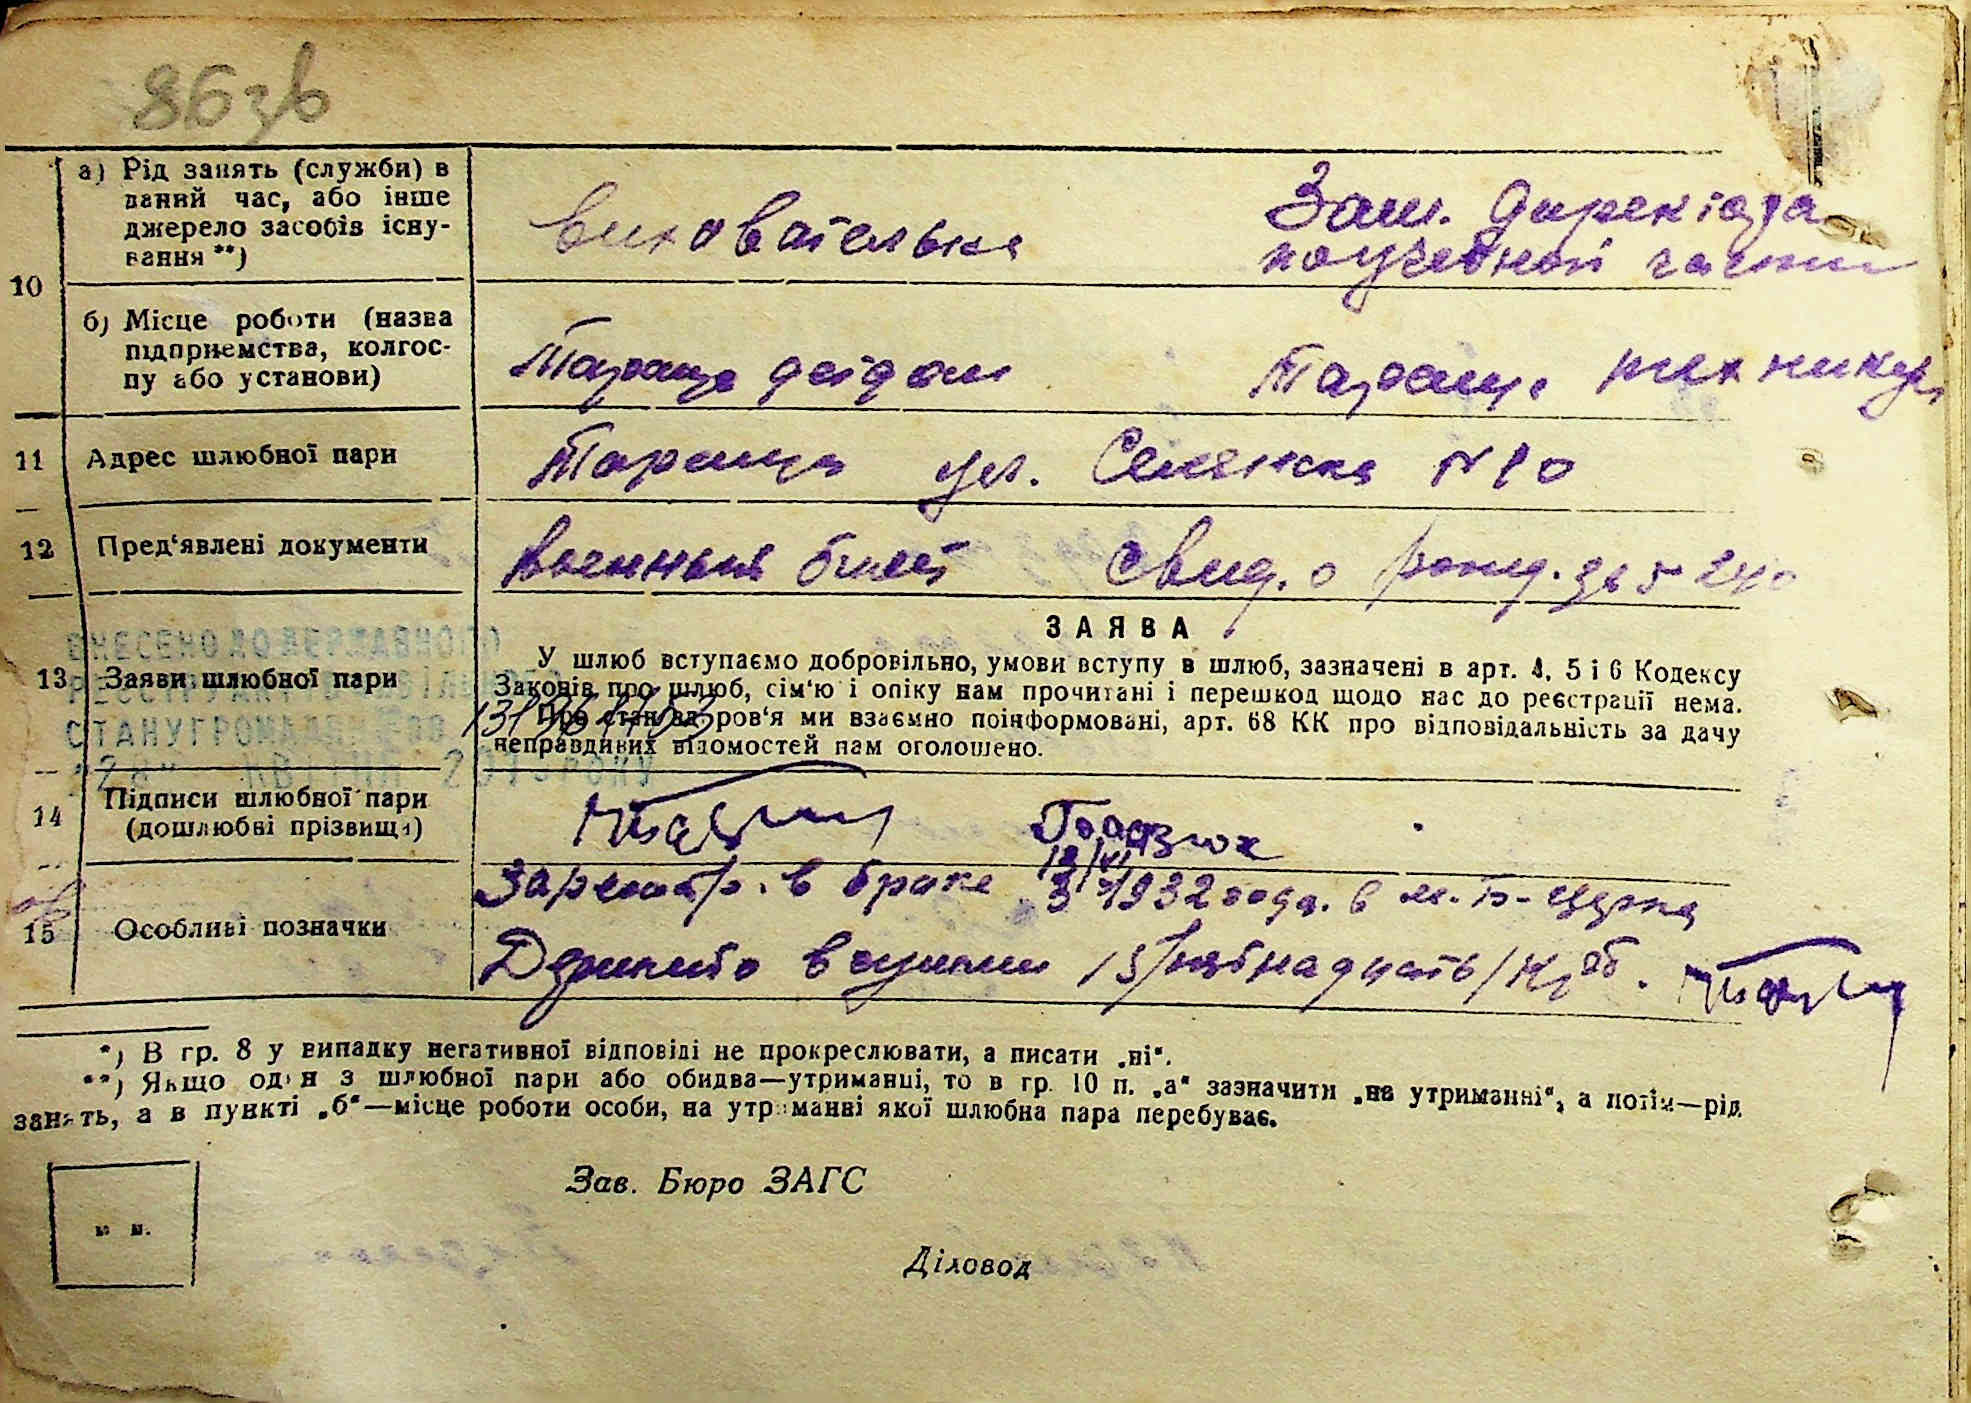 86 зв
10
а) Рід занять (служби) в
даний час, або інше
джерело засобів існу-
вання **)
Вихователька
Зам. директора
по учебной части
б) Місце роботи (назва
підприємства, колгос-
пу або установи)
Тараща дєтдом
Тараща техникум
11
Адрес шлюбної пари
Тараща ул. №10
12
Пред'явлені документи
Военный билет Свид. о рожд.
ВНЕСЕНО ДО ДЕРЖАВНОГО
13
Заяви шлюбної пари
ЗАЯВА
У шлюб вступаємо добровільно, умови вступу в шлюб, зазначені в арт. 4, 5 і 6 Кодексу
Законів про шлюб, сім'ю і опіку нам прочитані і перешкод щодо нас до реєстрації нема.
Про стан здоров'я ми взаємно поінформовані, арт. 68 КК про відповідальність за дачу
неправдивих відомостей нам оголошено.
14
Підписи шлюбної пари
(дошлюбні прізвища)
15
Особливі позначки
в браке 1932 года. в м. Б-Церква
15/пятнадцать/Крб.
*) В гр. 8 у випадку негативної відповіді не прокреслювати, а писати „ні“.
**) Якщо один з шлюбної пари або обидва—утриманці, то в гр. 10 п. „а“ зазначити „на утриманні“, а потім—рід
занять, а в пункті „б“—місце роботи особи, на утриманні якої шлюбна пара перебуває.
Зав. Бюро ЗАГС
м. п.
Діловод